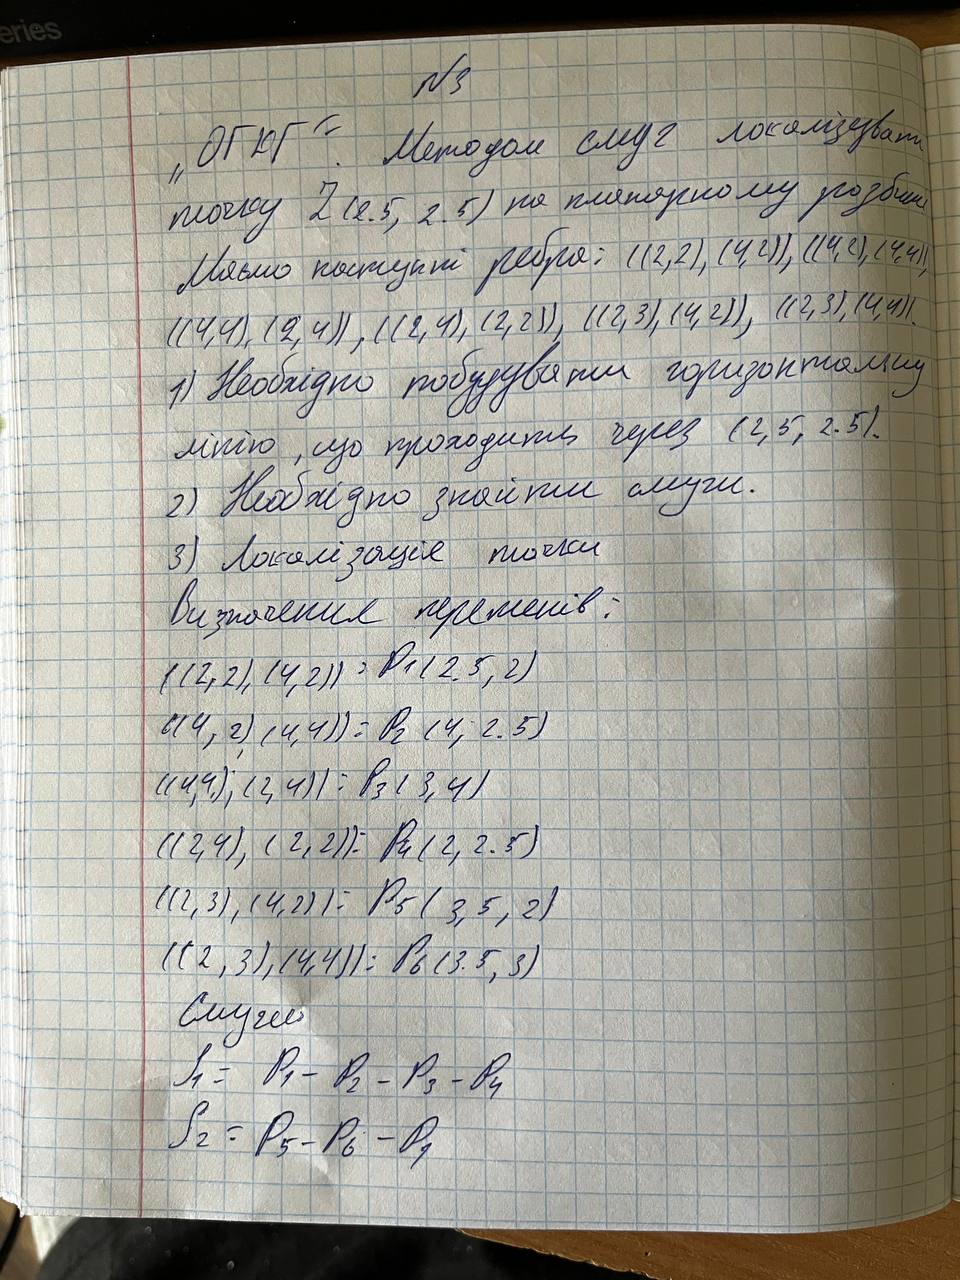 eries
№3
„ОГКГ“. Методом смуг локалізувати
точку Z (2.5, 2.5) на планарному розбитті
Маємо наступні ребра: ((2,2), (4,2)), ((4,2), (4,4)),
((4,4), (2,4)), ((2,4), (2,2)), ((2,3), (4,2)), ((2,3), (4,4)).
1) Необхідно побудувати горизонтальну
лінію, що проходить через (2,5, 2.5).
2) Необхідно знайти смуги.
3) Локалізація точки
Визначення перетенів:
((2,2), (4,2)) = P1 (2.5, 2)
((4, 2), (4,4)) = P2 (4, 2.5)
((4,4), (2,4)) = P3 (3, 4)
((2,4), (2,2)) = P4 (2, 2.5)
((2,3), (4,2)) = P5 (3,5, 2)
((2, 3), (4,4)) = P6 (3.5, 3)
Смуги
S1 = P1 - P2 - P3 - P4
S2 = P5 - P6 - P1